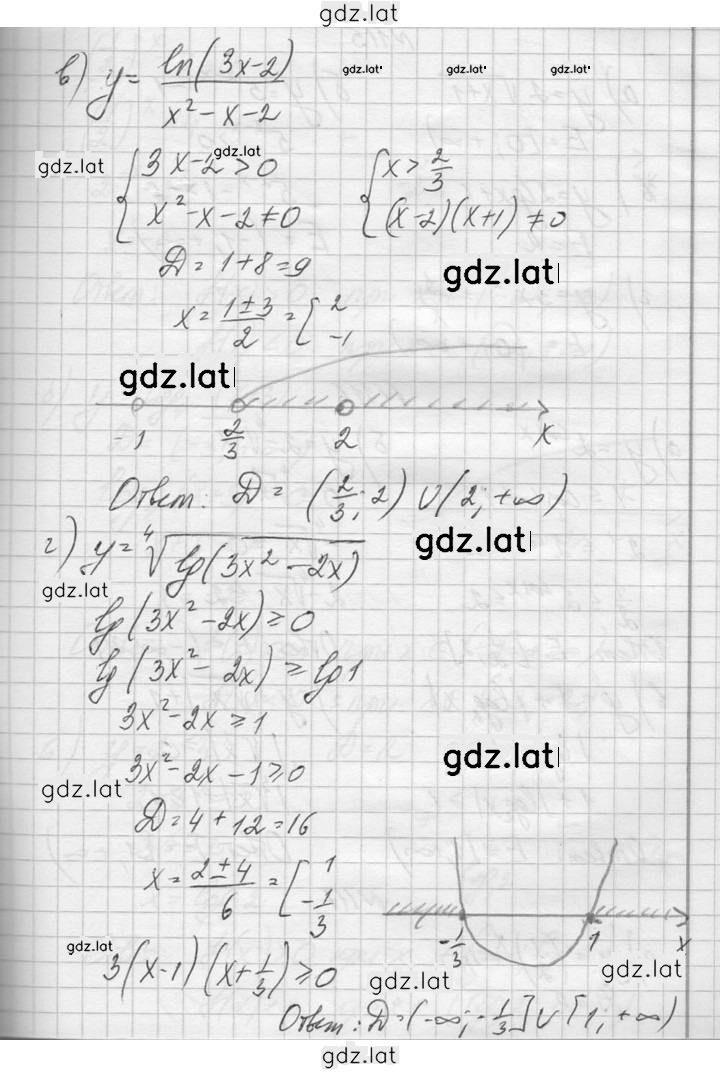 gdz.lat
в) y = ln(3x-2) / x² - x - 2
gdz.lat gdz.lat gdz.lat
gdz.lat
gdz.lat
{ 3x-2 > 0 { x > 2/3
x² - x - 2 ≠ 0 (x-2)(x+1) ≠ 0
D = 1+8 = 9
gdz.lat
x = 1±3 / 2 = [ 2
-1
gdz.lat
-1 2/3 2 x
Ответ: D = (2/3; 2) ∪ (2; +∞)
г) y = ⁴√lg(3x² - 2x)
gdz.lat
gdz.lat
lg(3x² - 2x) ≥ 0
lg(3x² - 2x) ≥ lg1
3x² - 2x ≥ 1
gdz.lat
3x² - 2x - 1 ≥ 0
gdz.lat
D = 4 + 12 = 16
x = 2±4 / 6 = [ 1
-1/3
-1/3 1 x
gdz.lat
3(x-1)(x+1/3) ≥ 0
gdz.lat gdz.lat
Ответ: D = (-∞; -1/3] ∪ [1; +∞)
gdz.lat